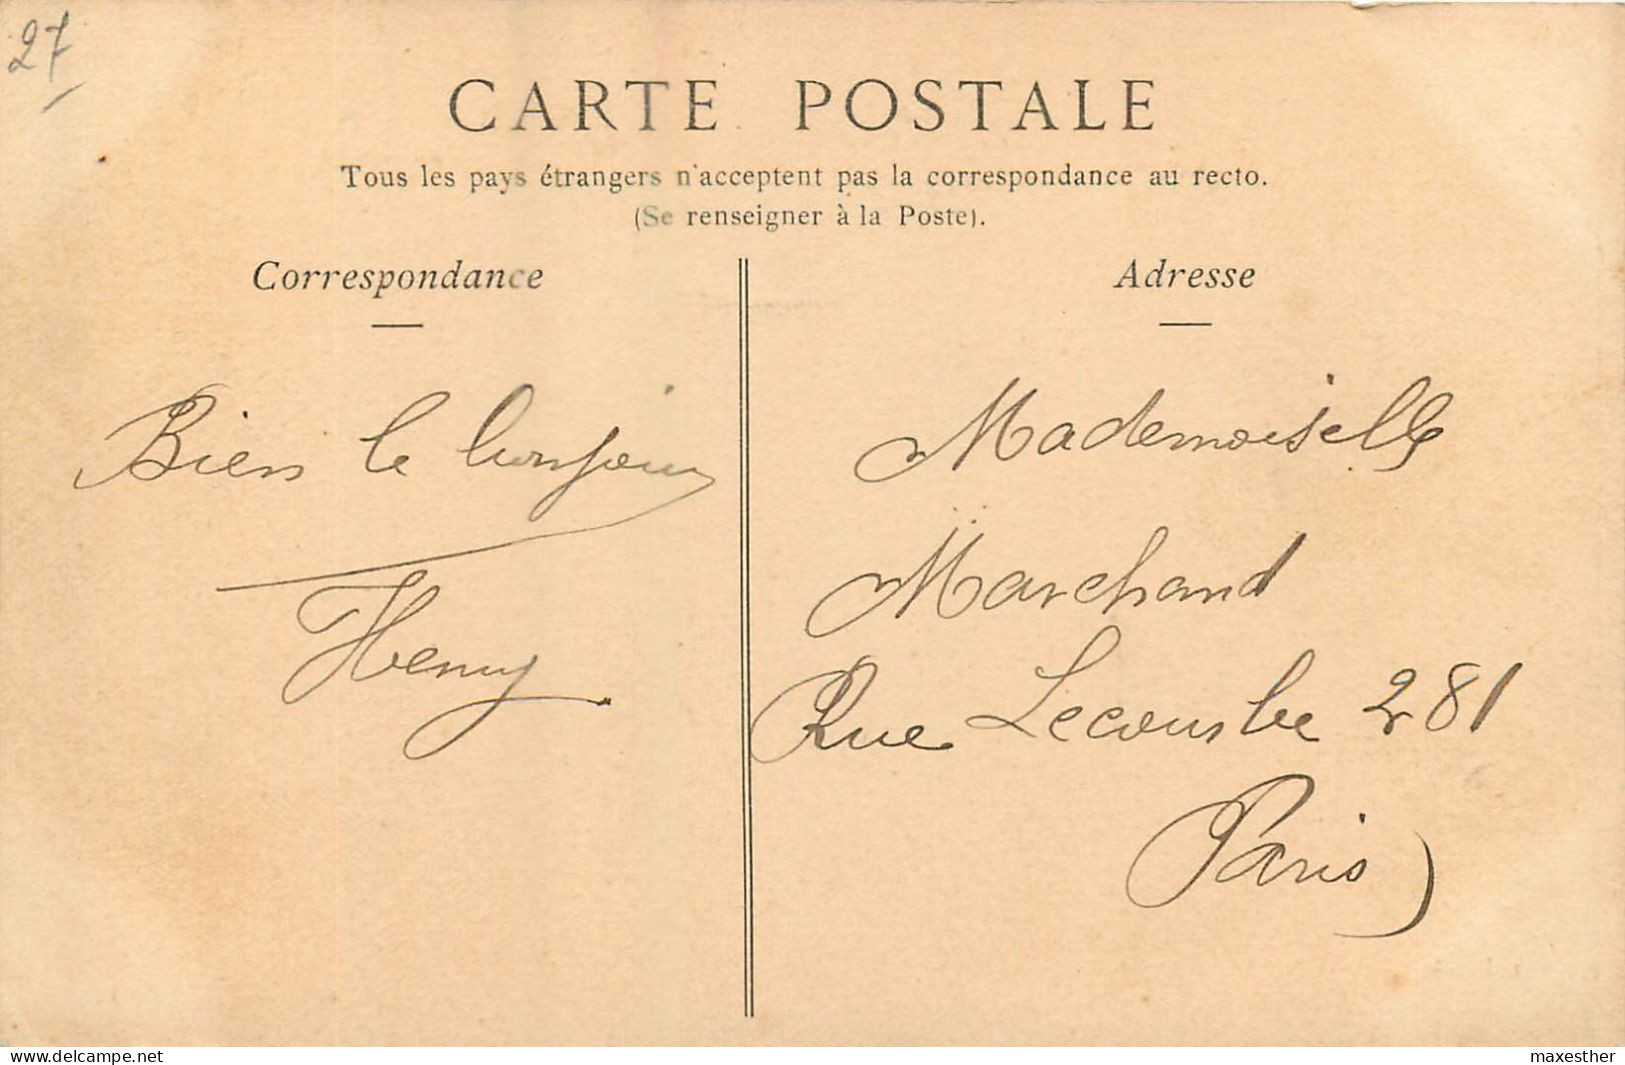 27
CARTE POSTALE
Tous les pays étrangers n'acceptent pas la correspondance au recto.
(Se renseigner à la Poste).
Correspondance
Bien le bonjour
Henry
Adresse
Mademoiselle
Marchand
Rue Lecourbe 281
Paris
www.delcampe.net
maxesther